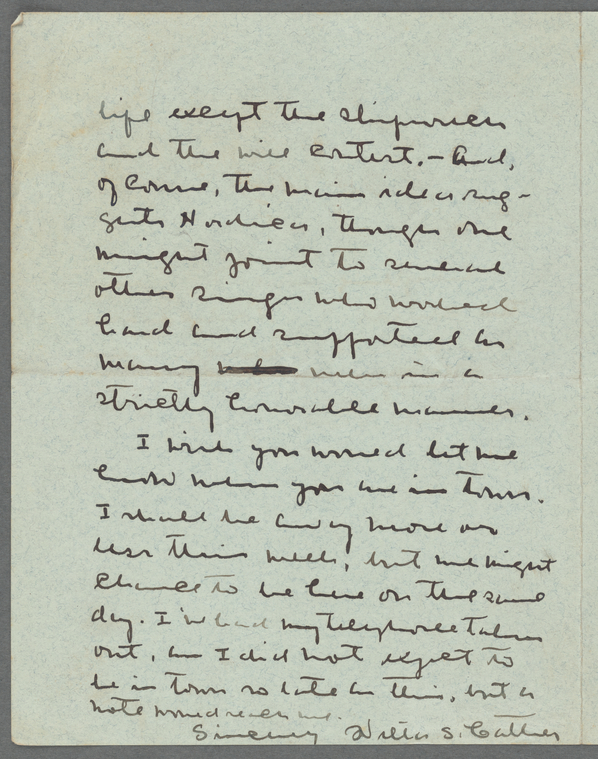 life except the shipwreck
and the will contest. - And,
of course, the main idea sug-
gests Nordica, though one
might point to several
other singers who worked
hard and supported as
many men in a
strictly honorable manner.
I wish you would let me
know when you are in town.
I shall be away more or
less this week, but we might
chance to be here on the same
day. I've had my telephone taken
out, as I did not expect to
be in town so late as this, but a
note would reach me.
Sincerely Willa S. Cather